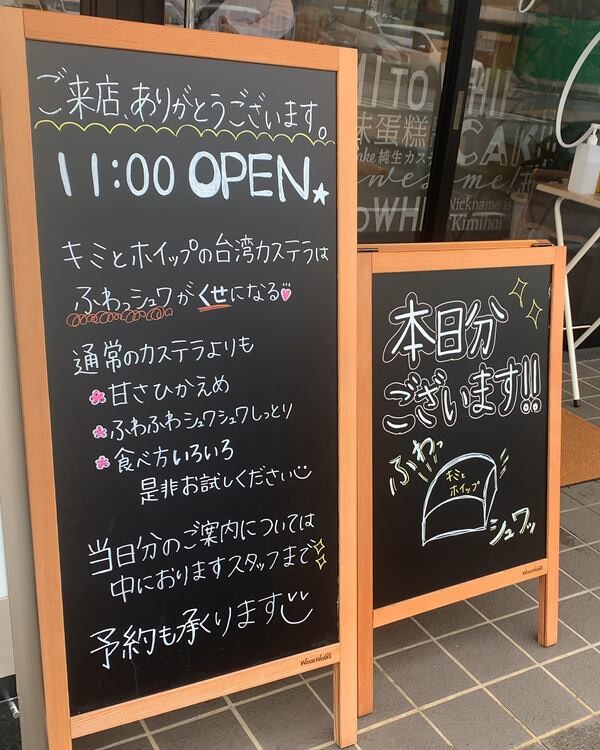 ご来店、ありがとうございます。
11:00 OPEN
キミとホイップの台湾カステラは
ふわっシュワがくせになる
通常のカステラよりも
甘さひかえめ
ふわふわシュワシュワしっとり
食べ方いろいろ
是非お試しください
当日分のご案内については
中におりますスタッフまで
予約も承ります
WoodWorks
本日分
ございます!!
ふわっ
キミと
ホイップ
シュワッ
WoodWorks
蛋糕
純生カス
Awesome!
Nickname is
Kimihoi